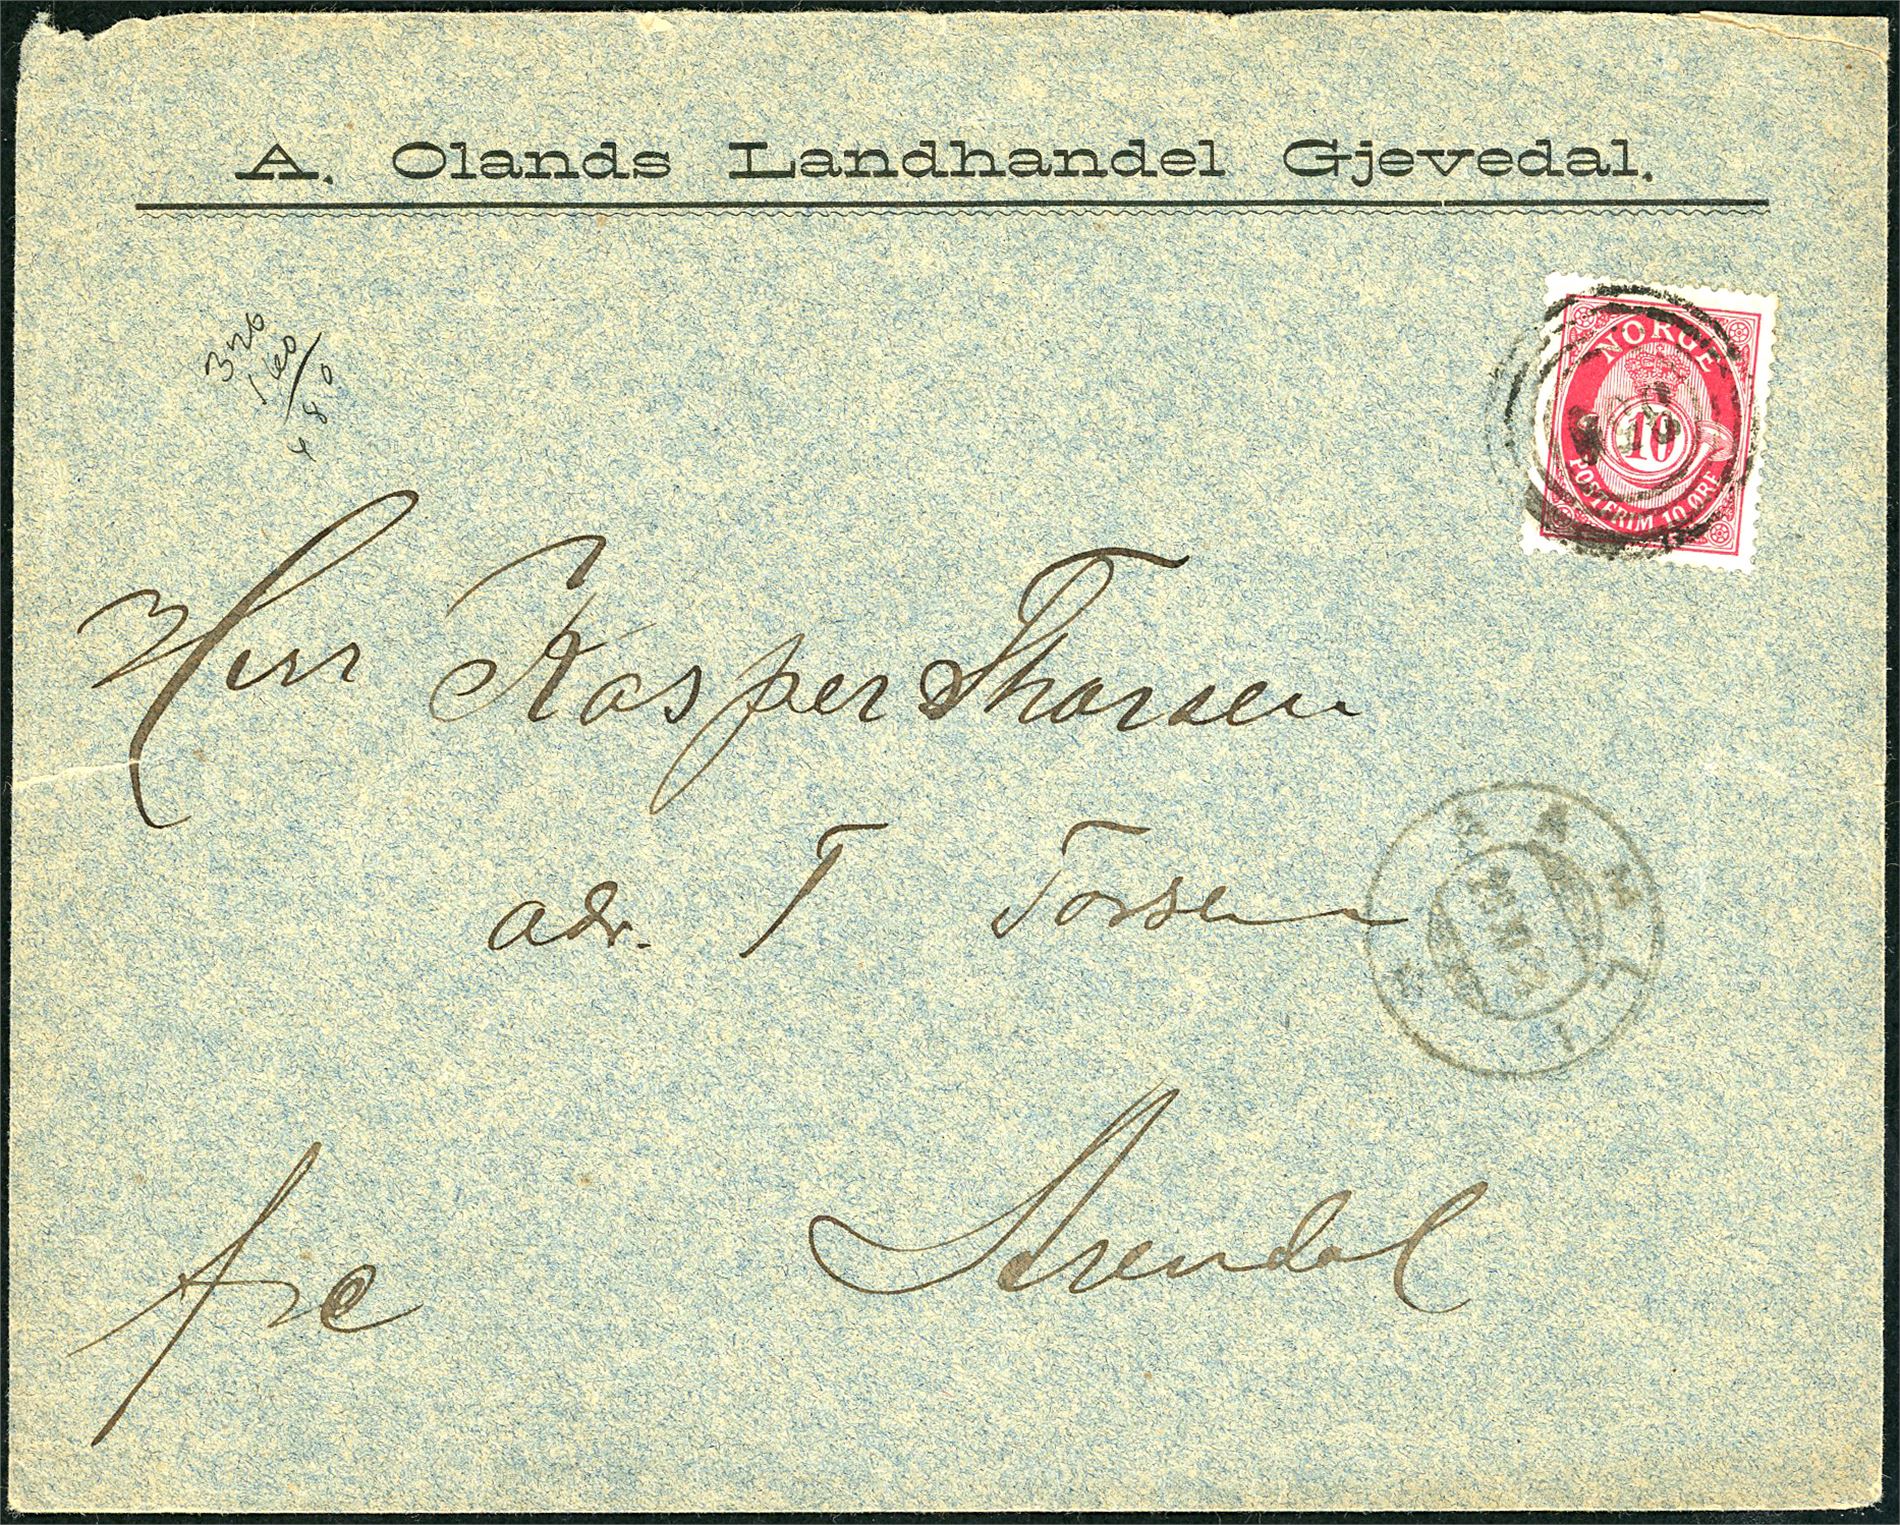 A. Olands Landhandel Gjevedal.
320
160
480
NORGE
10
POSTFRIM 10 ØRE
Herr Kasper Thorsen
adr. T Torsen
Arendal
frc